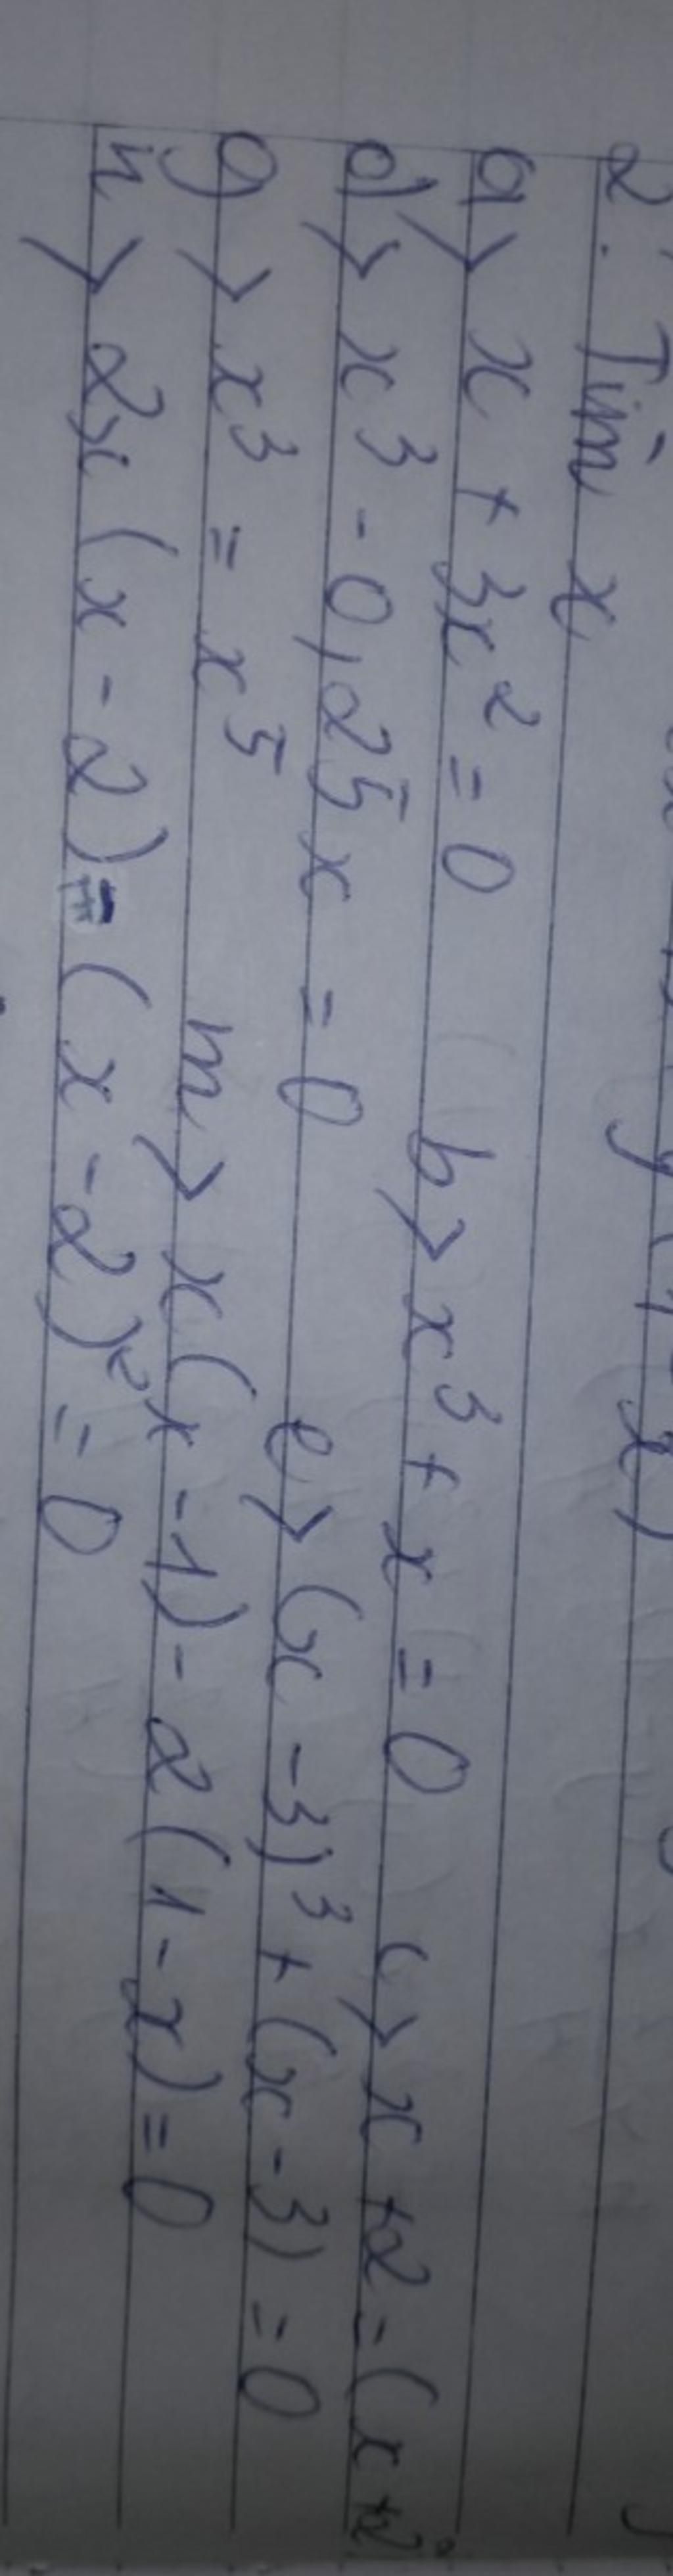 2. Tìm x
a> x + 3x² = 0 b> x³ + x = 0 c> x + 2 = (x + 2)
d> x³ - 0,25x = 0 e> (x - 3)³ + (x - 3) = 0
g> x³ = x⁵ m> x(x - 1) - 2(1 - x) = 0
h> 2x(x - 2) - (x - 2)² = 0